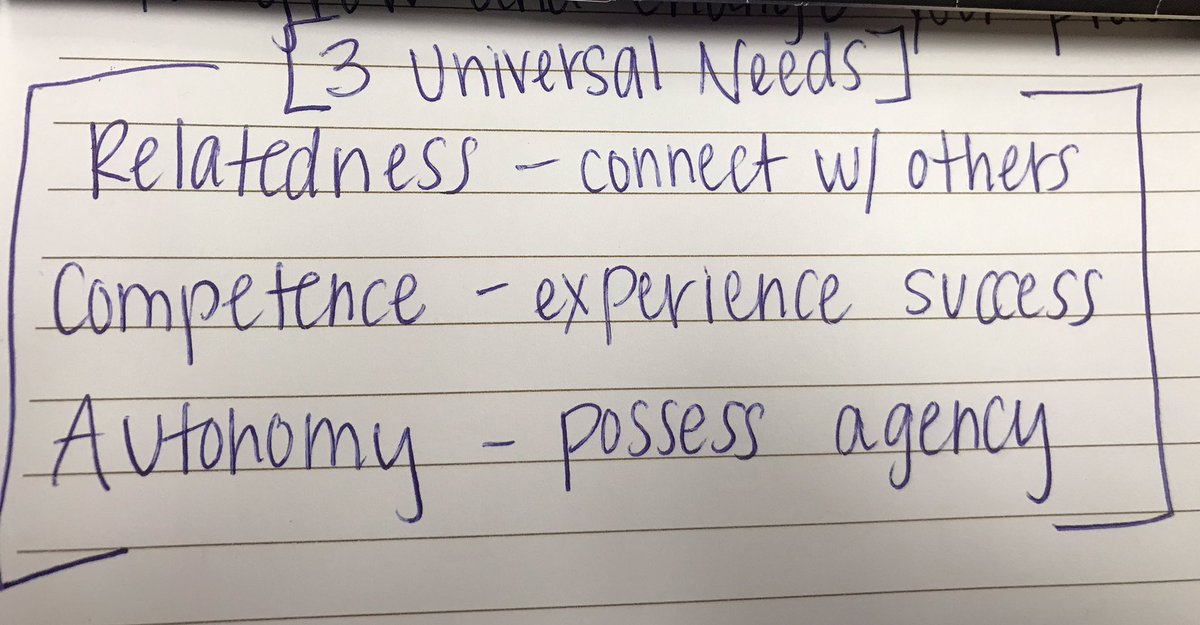 and change your
[3 Universal Needs]
Relatedness - connect w/ others
Competence - experience success
Autonomy - possess agency